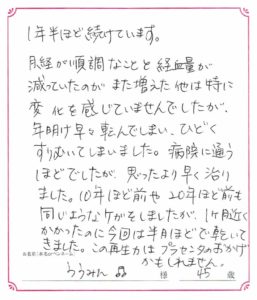 1年半ほど続けています。
月経が順調なことと経血量が
減っていたのがまた増えた他は特に
変化を感じていませんでしたが、
年明け早々転んでしまい、ひどく
すりむいてしまいました。病院に通う
ほどでしたが、思ったより早く治り
ました。10年ほど前や20年ほど前も
同じようなケガをしましたが、1ヶ月近く
かかったのに今回は半月ほどで乾いて
きました。この再生力はプラセンタのおかげ
かもしれません。
お名前(本名かペンネーム) ううみん 様 45 歳